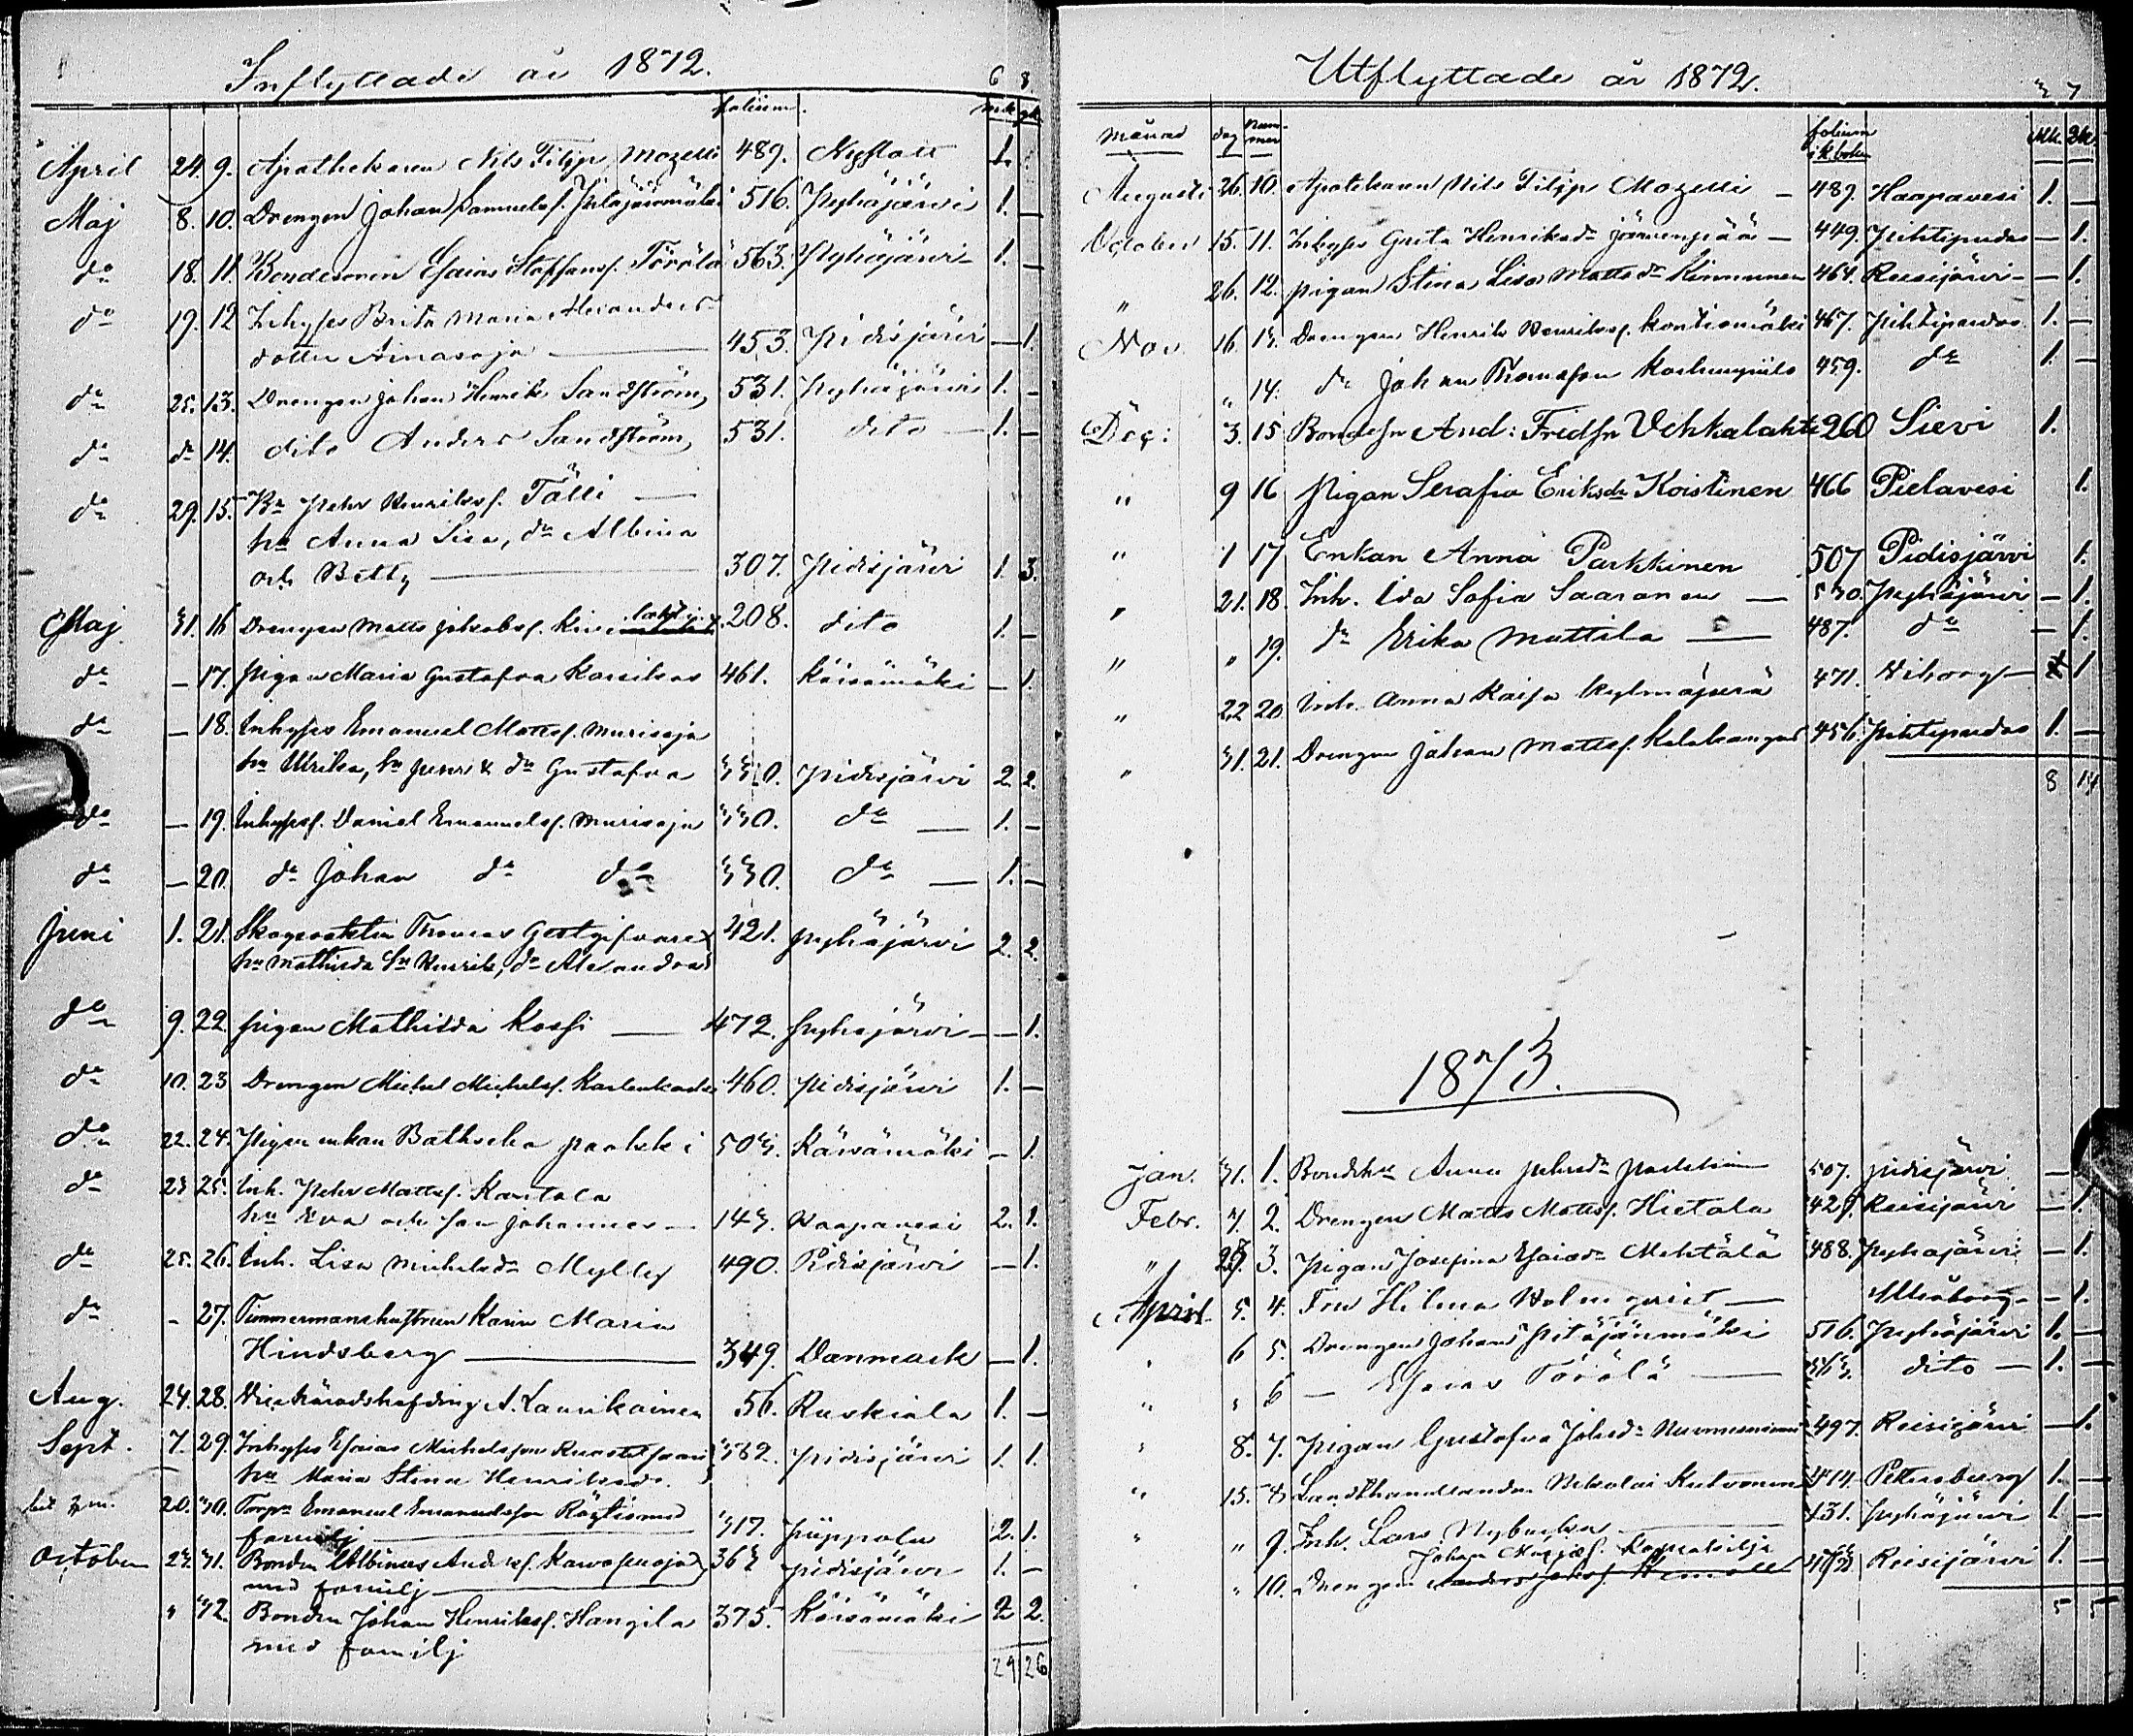 Inflyttade år 1872.
6 8
folium mk qk
April 24. 9. Apothekaren Nils Filip Mozelli 489. Nystad 1.
Maj 8. 10. Drengen Johan Samuelsf. Pitäjänmäki 516. Pyhäjärvi 1. —
do 18. 11. Bondesonen Esaias Staffansf. Törölä 563. Pyhäjärvi 1. —
do 19. 12 Inhyses Brita Maria Alexanders-
dotter Ainasoja 453. Pidisjärvi — 1.
do 25. 13. Drengen Johan Henrik Sandström 531. Pyhäjärvi 1. —
do do 14. dito Anders Sandström 531. dito 1. —
do 29. 15. Bn Pehr Henriksf. Tälli —
hu Anna Lisa, dr Albina
och Betty 307. Pidisjärvi 1. 3.
Maj 31. 16 Drengen Matts Jakobsf. 208. dito 1. —
do — 17. Pigan Maria Gustafva 461. Kärsämäki — 1.
do — 18. Inhyses Emanuel Mattsf. Murisoja
hu Ulrika, sn Henrik dr Gustafva 330. Pidisjärvi 2. 2.
do — 19. Inhysesf. Daniel Emanuelsf. Murisoja 330. do — 1. —
do — 20. do Johan do do 330. do — 1. —
Juni 1. 21. Skogvaktn Thomas 421. Pyhäjärvi 2. 2.
hu Mathilda sn Henrik, dr Alexandra
do 9. 22. Pigan Mathilda Kossi — 472. Pyhäjärvi — 1.
do 10. 23 Drengen Michel Michelsf. 460. Pidisjärvi 1. —
do 22. 24. Pigan enkan Bathseba 503. Kärsämäki — 1.
do 23 25. Inh. Pehr Mattsf. Kantola
hu Eva och son Johannes — 143. Haapavesi 2. 1.
do 25. 26. Inh. Lisa Michelsdr Mylly 490. Pidisjärvi — 1.
do - 27. Timmermanshustrun Karin Maria
Hindsberg 349. Danmark — 1.
Aug. 24. 28. Vicehäradshöfding A. Laurikainen 56. Ruskiala 1. —
Sept. 7. 29. Inhyses Esaias Michelsson 382. Pidisjärvi 1. 1.
hu Maria Stina Henriksdr.
20. 30. Torpn Emanuel Emanuelsson med
familj 317. Piippola 2. 1.
October 23. 31. Bonden Albinus Andersf. 363 Pidisjärvi 1. —
med familj
" 32. Bonden Johan Henriksf. Hangila 375. Kärsämäki 2 2.
med familj
29 26
Utflyttade år 1872.
3 7
Månad dag Num-mer folium i k boken Mk. Qk.
Augusti 26. 10. Apotekaren Nils Filip Mozelli — 489. Haapavesi 1. —
October 15. 11. Inhyses Greta Henriksdr Jämenpää — 449. Pihtipudas — 1.
" 26. 12. Pigan Stina Lisa Mattsdr Kinnunen 464. Reisijärvi — 1.
Nov. 16. 13. Drengen Henrik Henriksf. Kontiomäki 467. Pihtipudas 1. —
" 14. do Johan Thomasson 459. do 1. —
Dec: 3. 15 Bondesn And: Fredsn Vehkalahti 260 Sievi 1.
" 9 16 Pigan Serafia Eriksdr Koistinen 466 Pielavesi 1.
" 1 17 Enkan Anna Parkkinen 507 Pidisjärvi 1.
" 21. 18. Inh. Ida Sofia Saaranen — 530. Pyhäjärvi — 1.
" " 19. do Erika Mattila — 487. do — 1.
" 22 20 Inh. Anna Kaisa Kylmäperä 471. Viborg — 1
" 31. 21. Drengen Johan Mattsf. Kalakangas 456. Pihtipudas 1. —
8 14
1873.
Jan. 31. 1. Bondehu Anna Pehrsdr 507. Pidisjärvi —
Febr. 7. 2. Drengen Matts Mattsf. Hietala 429. Reisijärvi — 1.
" 3. Pigan Josefina Esaiasdr Mehtälä 488. Pyhäjärvi — 1.
April 5. 4. Fru Hilma Holmqvist — Uleåborg — 1.
" 6 5. Drengen Johan Pitäjänmäki 516. Pyhäjärvi 1. —
" " 6 — Esaias Törölä — 563. dito — 1. —
" 8. 7. Pigan Gustafva Johsdr 497. Reisijärvi — 1.
" 15. 8 Landthandlanden Nikolai Kutvonen 414. Petersburg 1. —
" " 9. Inh. Lars Nybacka 431. Pyhäjärvi 1 —
" " 10. Drengen Johan 492. Reisijärvi 1. —
5 5